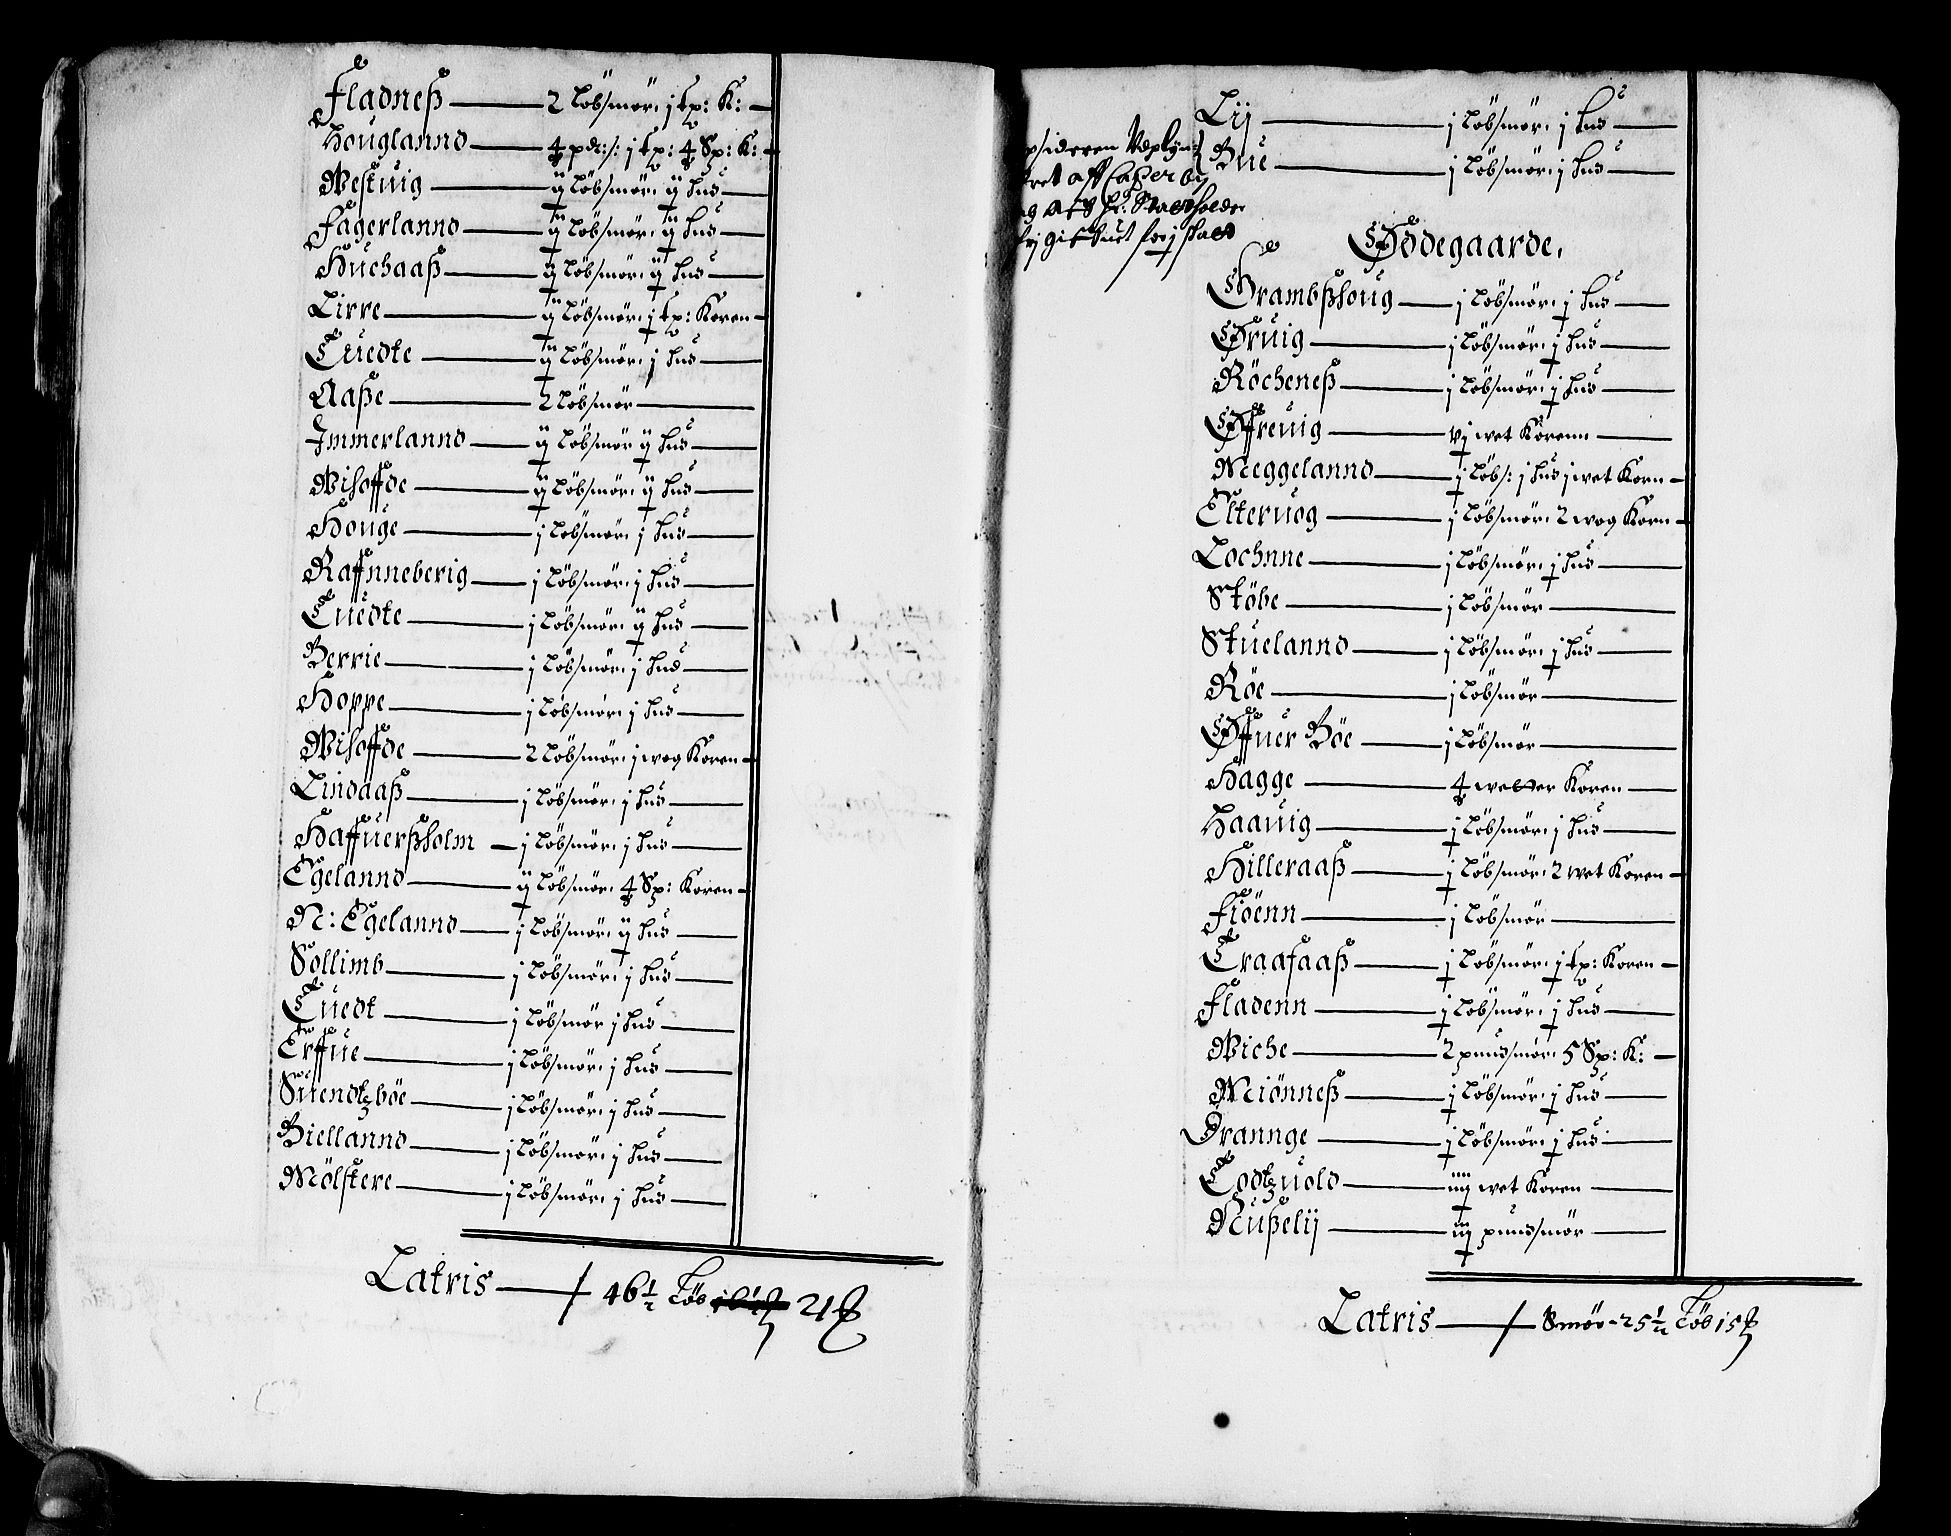 Fladneß 2 Løbsmør: j tp: K:
Houglannd 4 pdt:/: j tp: 4 Sp: K:
Westuig ij Løbsmør: ij hud
Fagerlannd iij Løbsmør: iij hud
Huchaaß ij Løbsmør: ij hud
Lirre iij Løbsmør: j tp: Koren
Tuedte iij Løbsmør: j hud
Aaße 2 Løbsmør
Immerlannd ij Løbsmør ij hud
Wisoffde ij Løbsmør: ij hud
Houge j Løbsmør: j hud
Raffnneberig j Løbsmør: j hud
Tuedte j Løbsmør: ij hud
Berrie j Løbsmør: j hud
Hoppe j Løbsmør: j hud
Wisoffde 2 Løbsmør: j wog Koren
Lindaaß j Løbsmør: j hud
Haffuerßholm j Løbsmør: j hud
Egelannd ij Løbsmør: 4 Sp: Koren
N: Egelannd j Løbsmør: ij hud
Sollimb j Løbsmør: j hud
Tuedt j Løbsmør j hud
Erffue j Løbsmør: j hud
Suendtzbøe j Løbsmør: j hud
Biellannd j Løbsmør: j hud
Mølstere j Løbsmør: j hud
Latris 46½ Løb 21
Lij j Løbsmør: j hud
Bue j Løbsmør: j hud
aff Casper
Ødegaarde,
Grambßhoug j Løbsmør: j hud
Øruig j Løbsmør: j hud
Røcheneß j Løbsmør: j hud
Øffreuig vj wet Korenn
Meggelannd j Løbs: j hud j wet Korn
Elteruog j Løbsmør: 2 wog Korn
Lochnne j Løbsmør: j hud
Støbe j Løbsmør
Stuelannd j Løbsmør: j hud
Røe j Løbsmør
Øffuer Bøe j Løbsmør
Hagge 4 wetter Koren
Haauig j Løbsmør: j hud
Hilleraaß j Løbsmør: 2 wet Koren
Fiøenn j Løbsmør
Traafaaß j Løbsmør: j tp: Koren
Fladenn j Løbsmør: j hud
Wiche 2 pundsmør: 5 Sp: K:
Miønneß j Løbsmør: j hud
Drannge j Løbsmør: j hud
Todtzuold iiij wet Koren
Nußelij iij pundsmør
Latris Smør - 25½ Løb 15